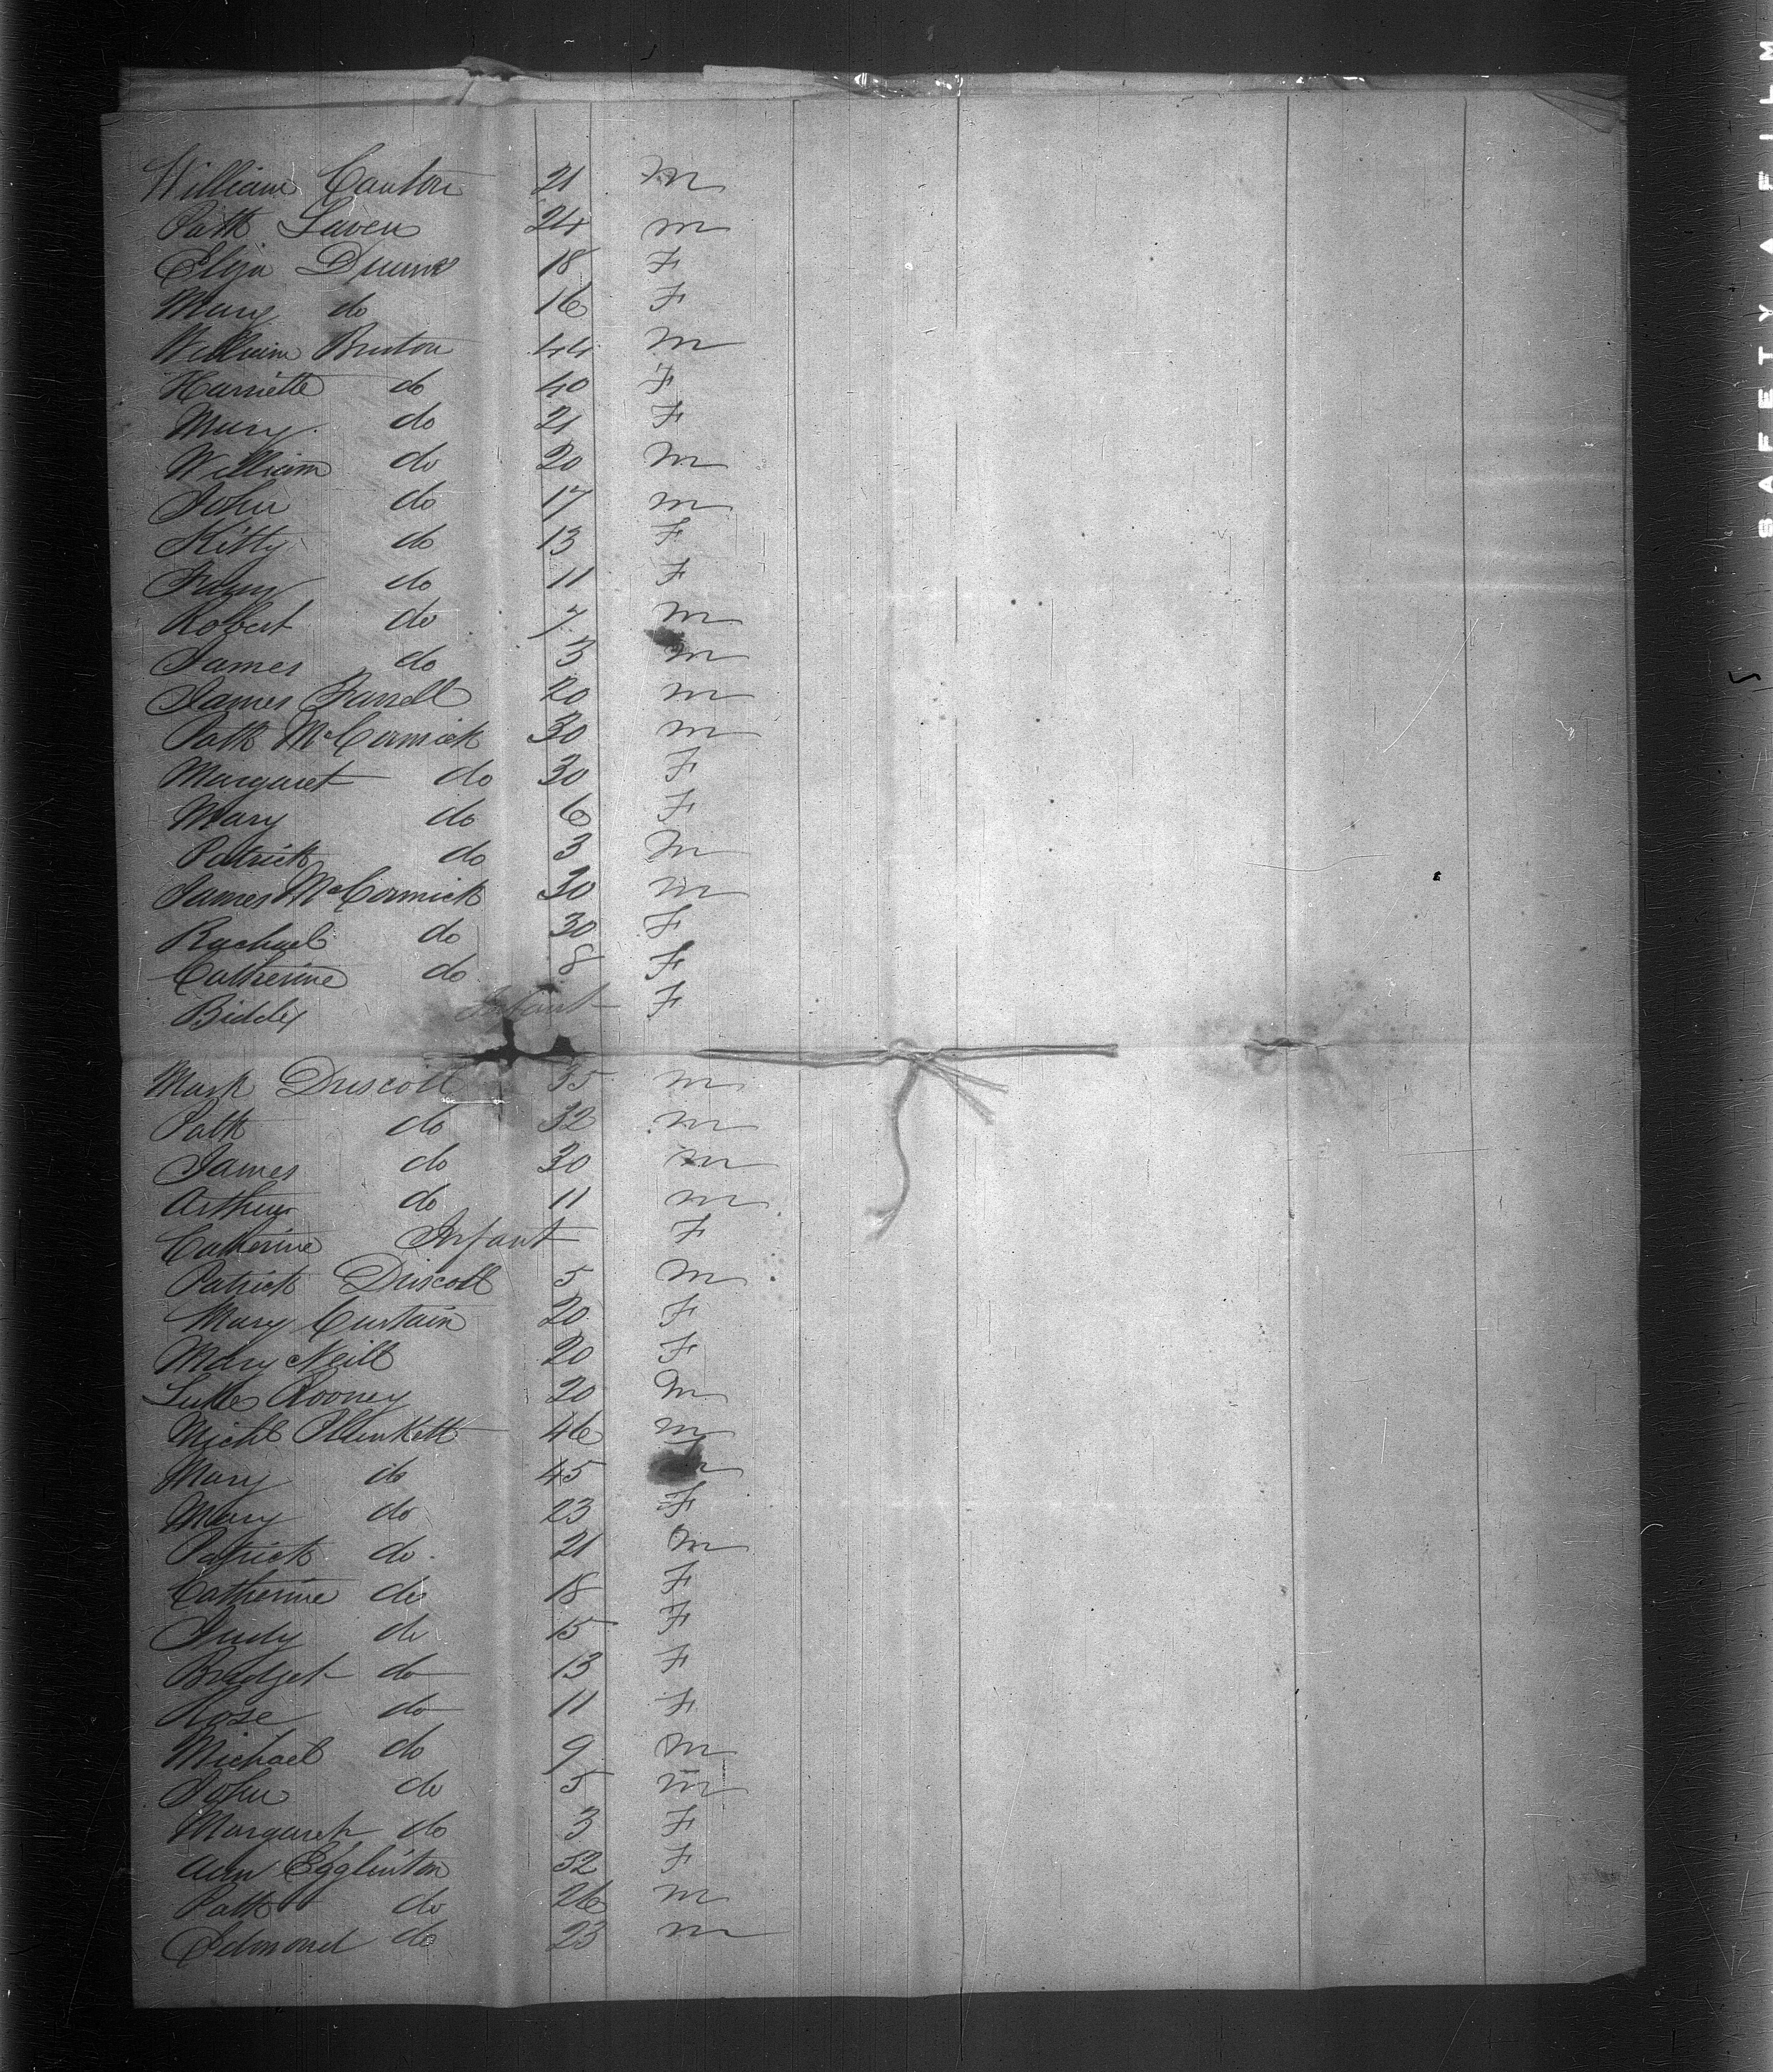 William Canton 21 m
Patk Laven 24 m
Eliza Dunne 18 F
Mary do 16 F
William Bruton 44 m
Harriette do 40 F
Mary do 21 F
William do 20 m
John do 17 m
Kitty do 13 F
do 11 F
Robert do 7 m
James do 3 m
James Farrell 20 m
Patk McCormick 30 m
Margaret do 30 F
Mary do 6 F
Patrick do 3 m
James McCormick 30 m
Rachael do 30 F
Catherine do 8 F
Biddy Infant F
Mark Driscoll 35 m
Patk do 32 m
James do 30 m
Arthur do 11 m
Catherine Infant F
Patrick Driscoll 5 m
Mary Curtain 20 F
Mary Neill 20 F
Luke Rooney 20 m
Michl Plunkett 46 m
Mary do 45
Mary do 23 F
Patrick do 21 m
Catherine do 18 F
Judy do 15 F
Bridget do 13 F
Rose do 11 F
Michael do 9 m
John do 5 m
Margaret do 3 F
Ann Egglinton 32 F
Patk do 26 m
Edmond do 23 m
SAFETY FILM